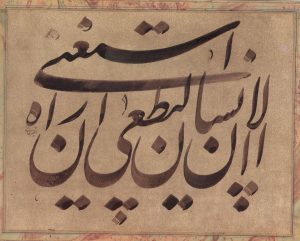 ان الانسان لیطغی ان راه
استغنی